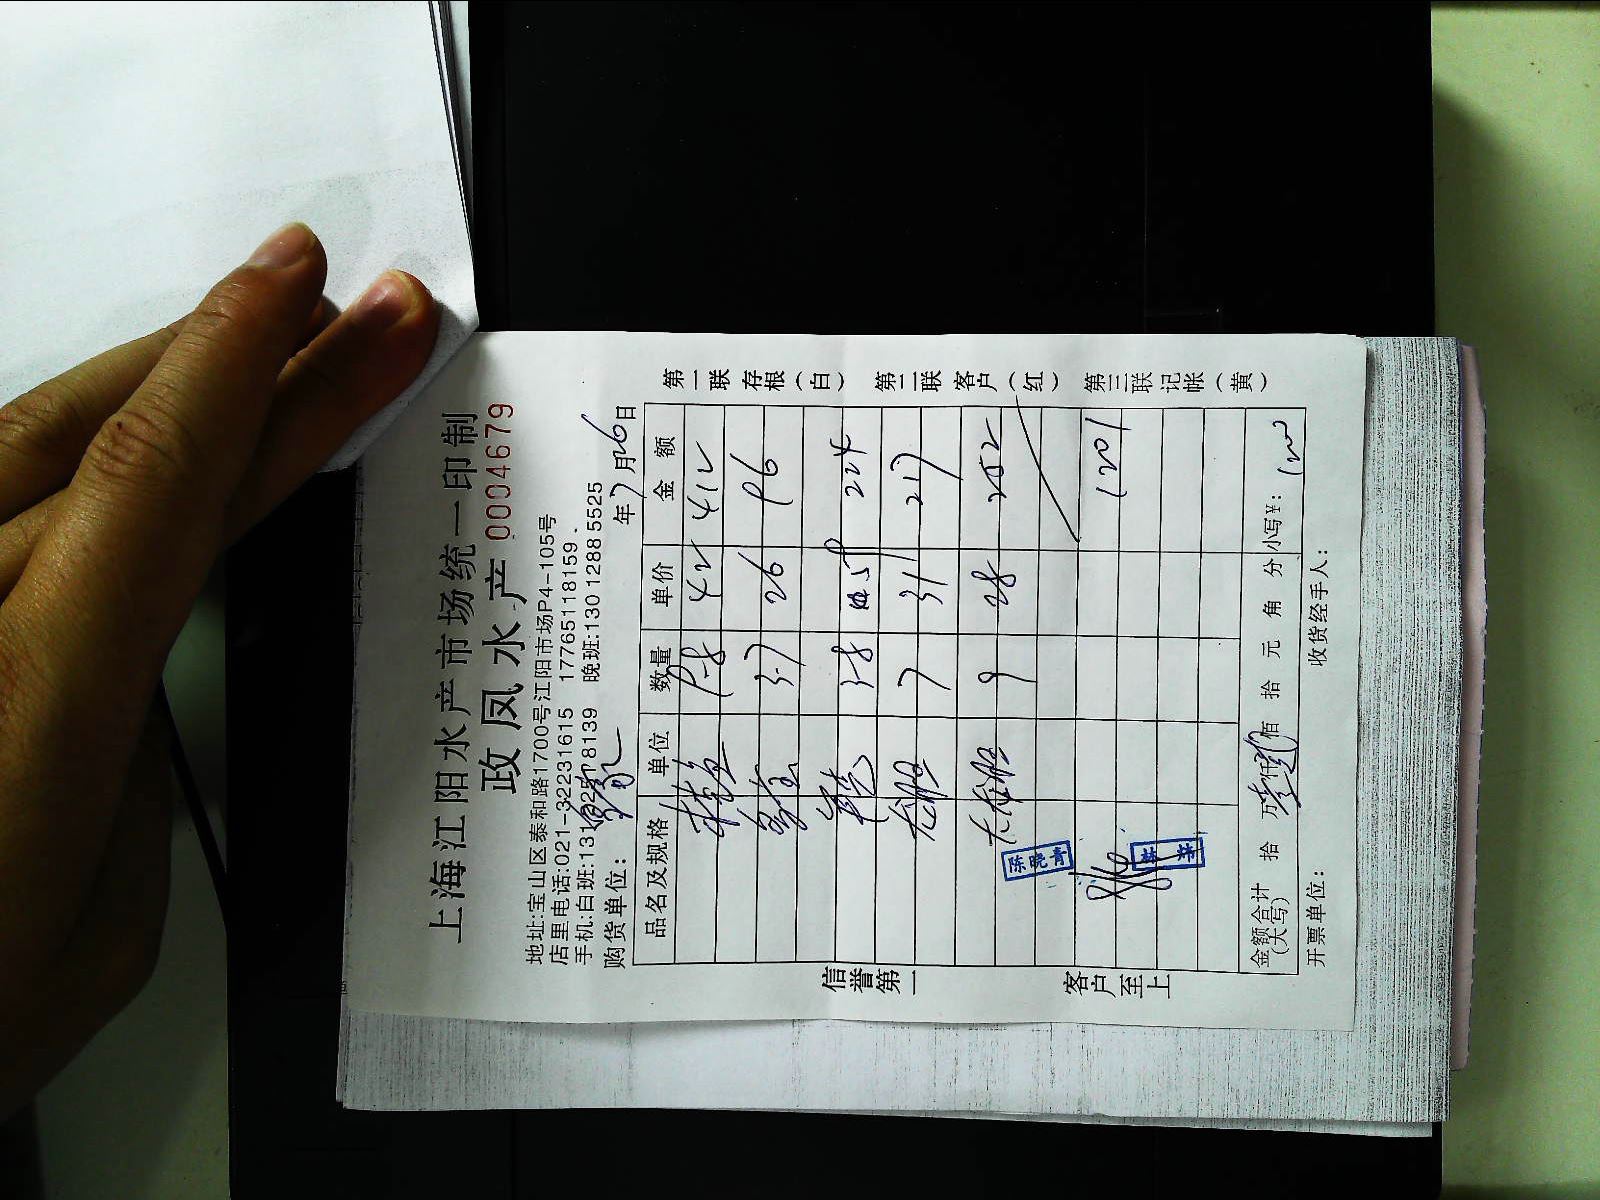 上海江阳水产市场统一印制
政凤水产 0004679
地址:宝山区泰和路1700号江阳市场P4-105号
店里电话:021-32231615 17765118159
手机:白班:131 8139 晚班:130 1288 5525
购货单位: 年7月26日
品名及规格 单位 数量 单价 金额
9.8 42 412
3.7 26 96
3.8 59 224
7 31 217
龙虾 9 28 252
1201
陈晓青
金额合计(大写) 拾 万 仟 佰 拾 元 角 分 小写¥: 1200
开票单位: 收货经手人:
信誉第一 客户至上
第一联存根(白) 第二联客户(红) 第三联记帐(黄)